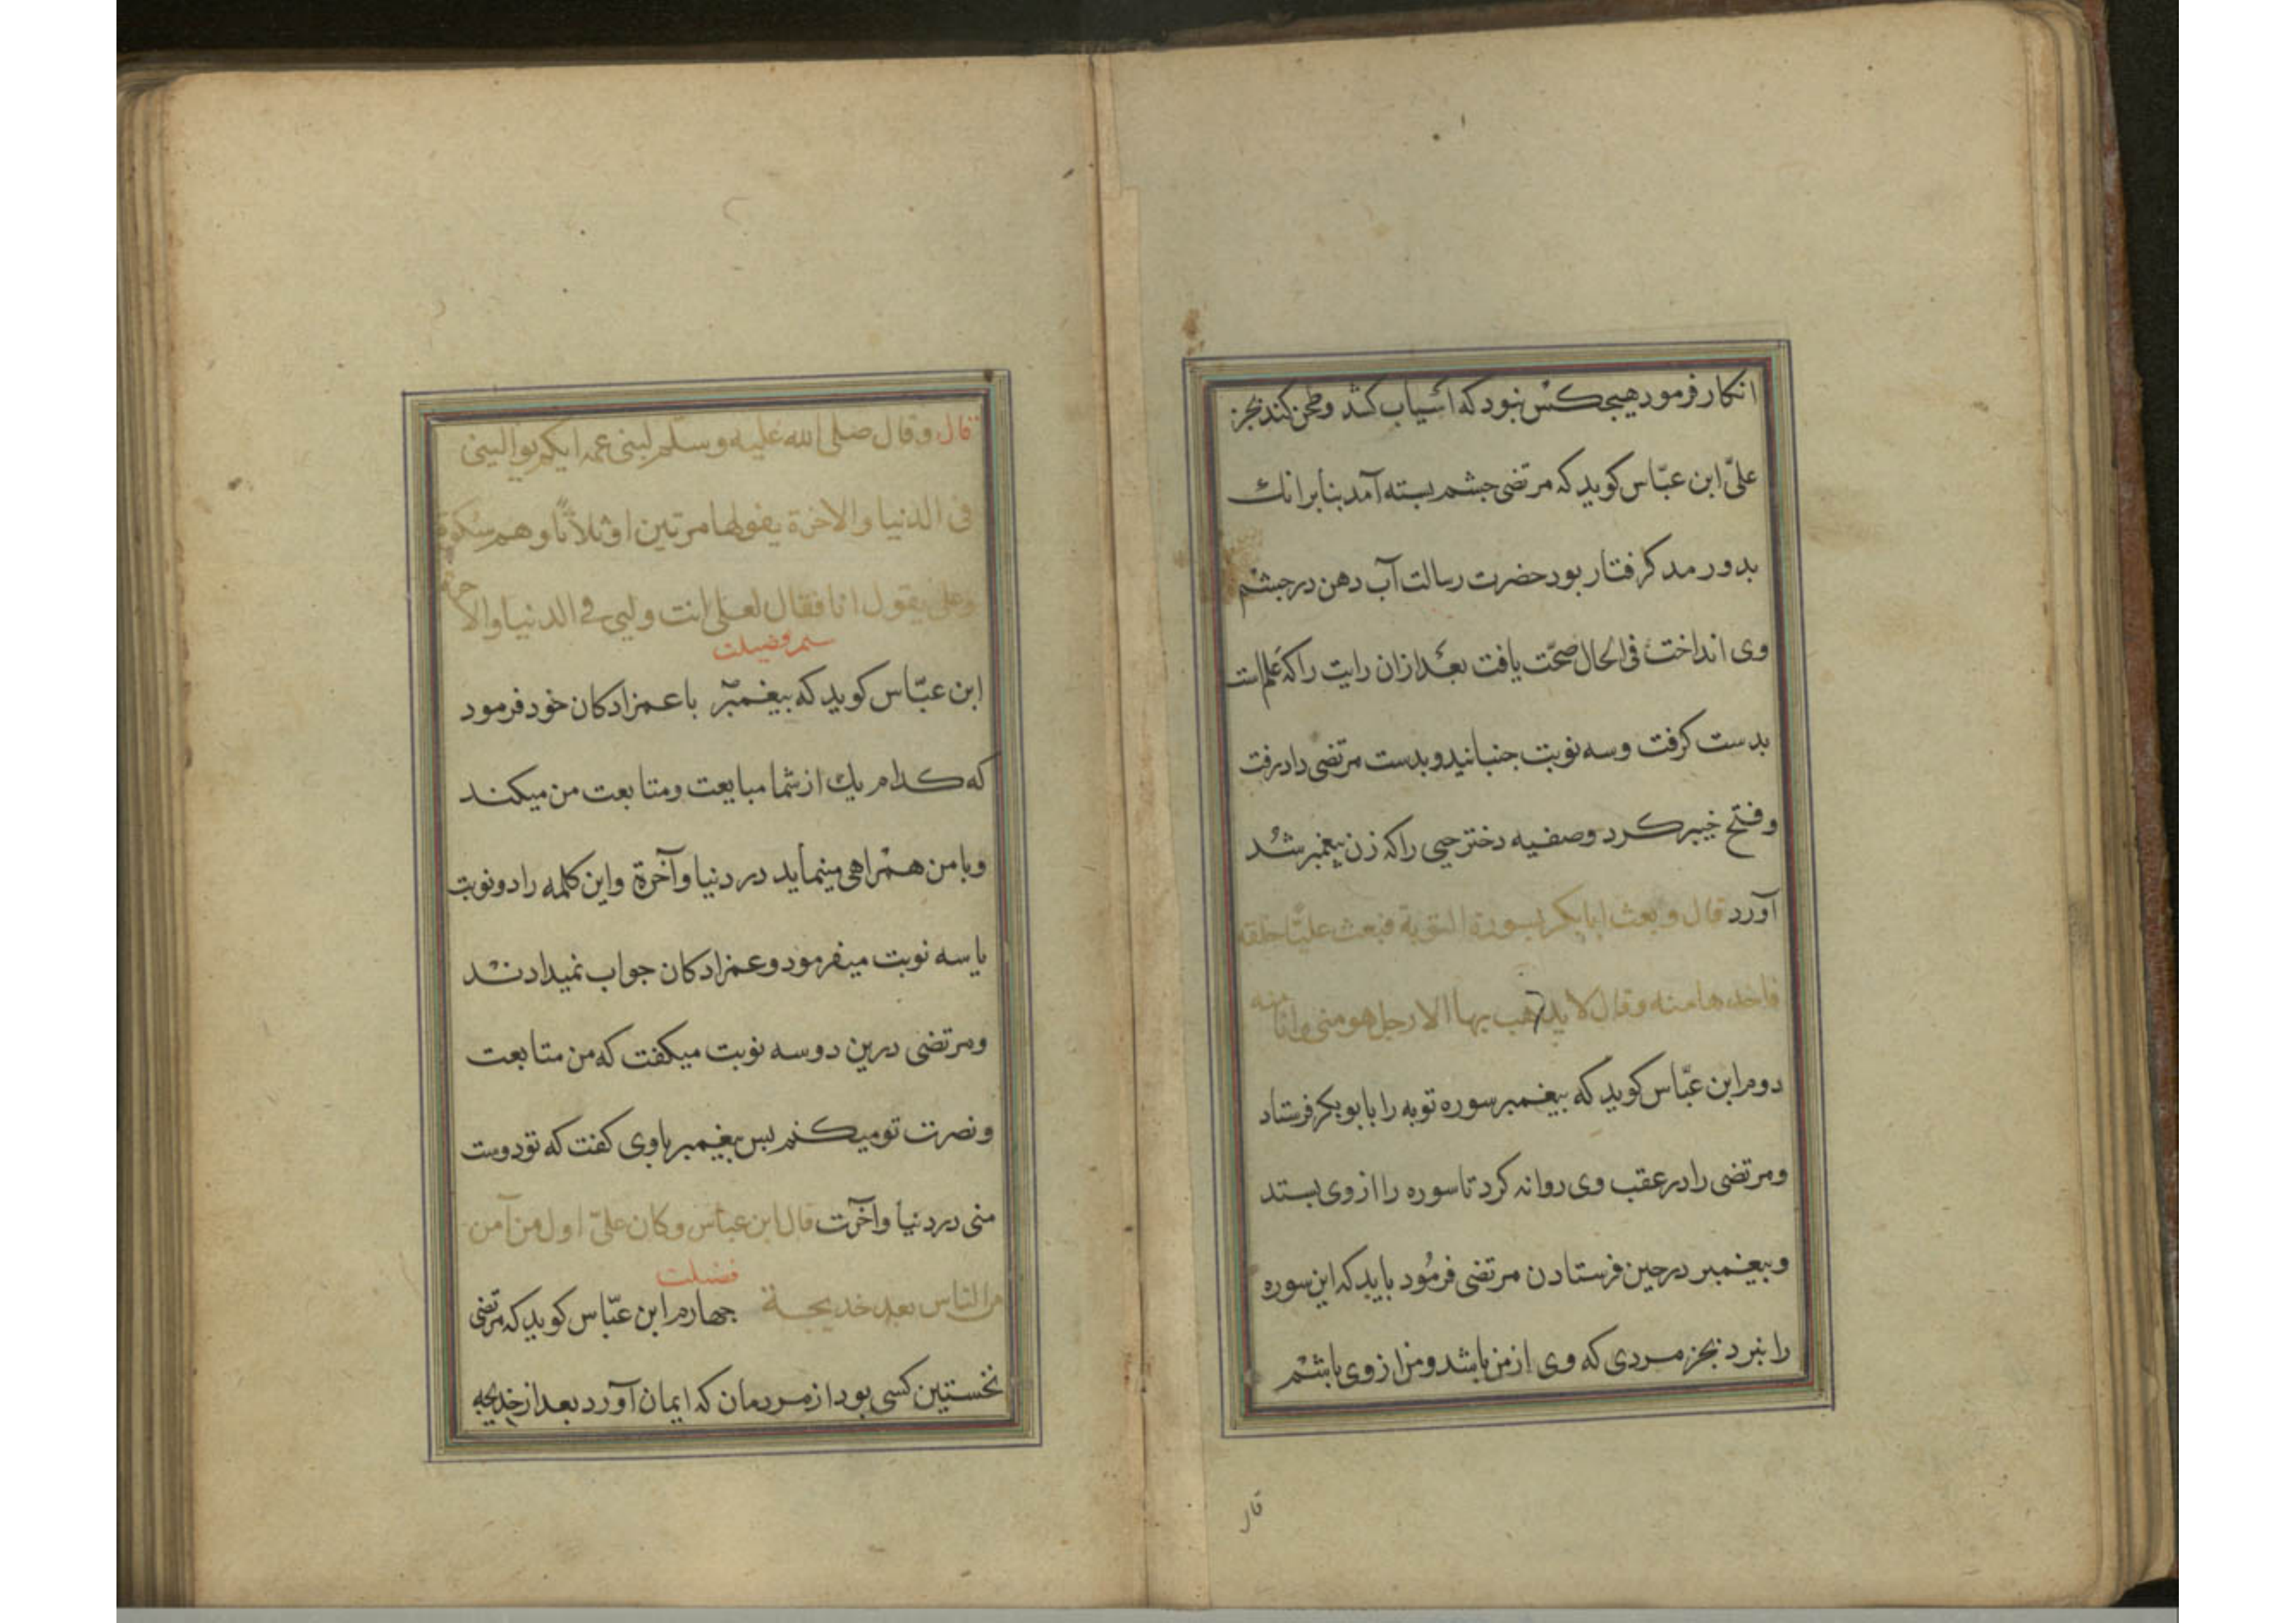 انکار فرمود هیجکس نبود که اسیاب کشد و طحن کند بجز
علیّ ابن عبّاس کوید که مرتضی جشم بسته آمد بنابرانك
بدورمد کرفتار بود حضرت رسالت آب دهن در جشم
وی انداخت فی الحال صحّت یافت بعد ازان رایت را که علم است
بدست کرفت وسه نوبت جنبانید و بدست مرتضی داد برفت
وفتح خیبر کرد وصفیه دختر حیی را که زن پیغمبر شد
آورد قال و بعث ابا بکر بسورة التوبة فبعث علیّا خلفه
فاخذها منه وقال لا یذهب بها الا رجل هو منی وانا منه
دوم ابن عبّاس کوید که بیغمبر سوره توبه را با بو بکر فرستاد
ومرتضی را در عقب وی روانه کرد تا سوره را از وی بستد
وبیغمبر درحین فرستادن مرتضی فرمُود باید که این سوره
را نبرد بجز مردی که وی از من باشد ومن از وی باشم
قال
قال وقال صلی الله علیه وسلّم لبنی عمه ایکم یوالینی
فی الدنیا والاخرة یقولها مرتین او ثلاثًا وهم سکوت
وعلی یقول انا فقال لعلی انت ولیی فی الدنیا والاخرة
سم فضیلت
ابن عبّاس کوید که بیغمبر با عمزادکان خود فرمود
که کدام یك از شما مبایعت ومتابعت من میکند
وبا من همراهی مینماید در دنیا وآخرة واین کلمه را دو نوبت
یا سه نوبت میفرمود وعمزادکان جواب نمیدادند
ومرتضی درین دوسه نوبت میکفت که من متابعت
ونصرت تو میکنم بس بیغمبر با وی کفت که تو دوست
منی در دنیا وآخرت قال ابن عباس وکان علیّ اول من آمن
فضیلت
من الناس بعد خدیجة جهارم ابن عبّاس کوید که مرتضی
نخستین کسی بود از مردمان که ایمان آورد بعد از خدیجه